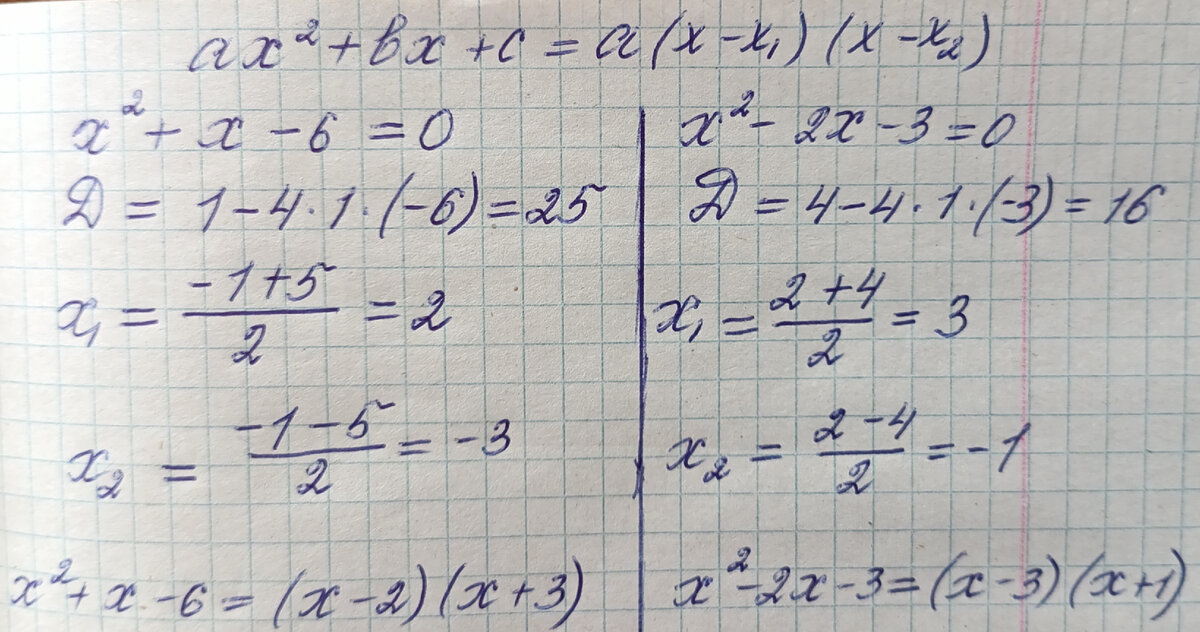 ax² + bx + c = a(x - x₁)(x - x₂)
x² + x - 6 = 0
Д = 1 - 4 · 1 · (-6) = 25
x₁ = (-1+5)/2 = 2
x₂ = (-1-5)/2 = -3
x² + x - 6 = (x - 2)(x + 3)
x² - 2x - 3 = 0
Д = 4 - 4 · 1 · (-3) = 16
x₁ = (2+4)/2 = 3
x₂ = (2-4)/2 = -1
x² - 2x - 3 = (x - 3)(x + 1)